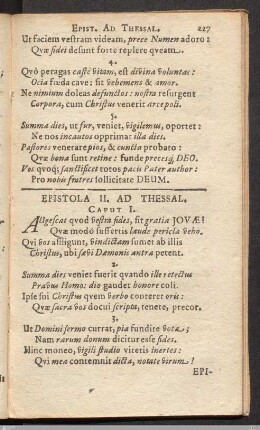 EPIST. AD THESSAL. 227
Ut faciem vestram videam, prece Numen adoro:
Quæ fidei desunt forte replere queam.
4.
Quò peragas castè vitam, est divina voluntas:
Ocia fœda cave: sit vehemens & amor.
Ne nimium doleas defunctos: nostra resurgent
Corpora, cum Christus venerit arce poli.
5.
Summa dies, ut fur, veniet, vigilemus, oportet:
Ne nos incautos opprimat illa dies.
Pastores venerare pios, & cuncta probato:
Quæ bona sunt retine: funde preces DEO.
Vos quoq; sanctificet totos pacis Pater author:
Pro nobis fratres sollicitate DEUM.
EPISTOLA II. AD THESSAL.
CAPUT I.
AUgescat quod vestra fides, sit gratia JOVÆ!
Quæ modò suffertis laude pericla veho.
Qui vos affligunt, vindictam sumet ab illis
Christus, ubi sævi Dæmonis antra petent.
2.
Summa dies veniet fuerit quando ille retectus
Pravus Homo: dio gaudet honore coli.
Ipse sui Christus quem verbo conteret oris:
Quæ sacra vos docui scripta, tenete, precor.
3.
Ut Domini sermo currat, pia fundite vota;
Nam rarum donum dicitur esse fides.
Hinc moneo, vigili studio vitetis inertes:
Qui mea contemnit dicta, notate virum!
EPI-